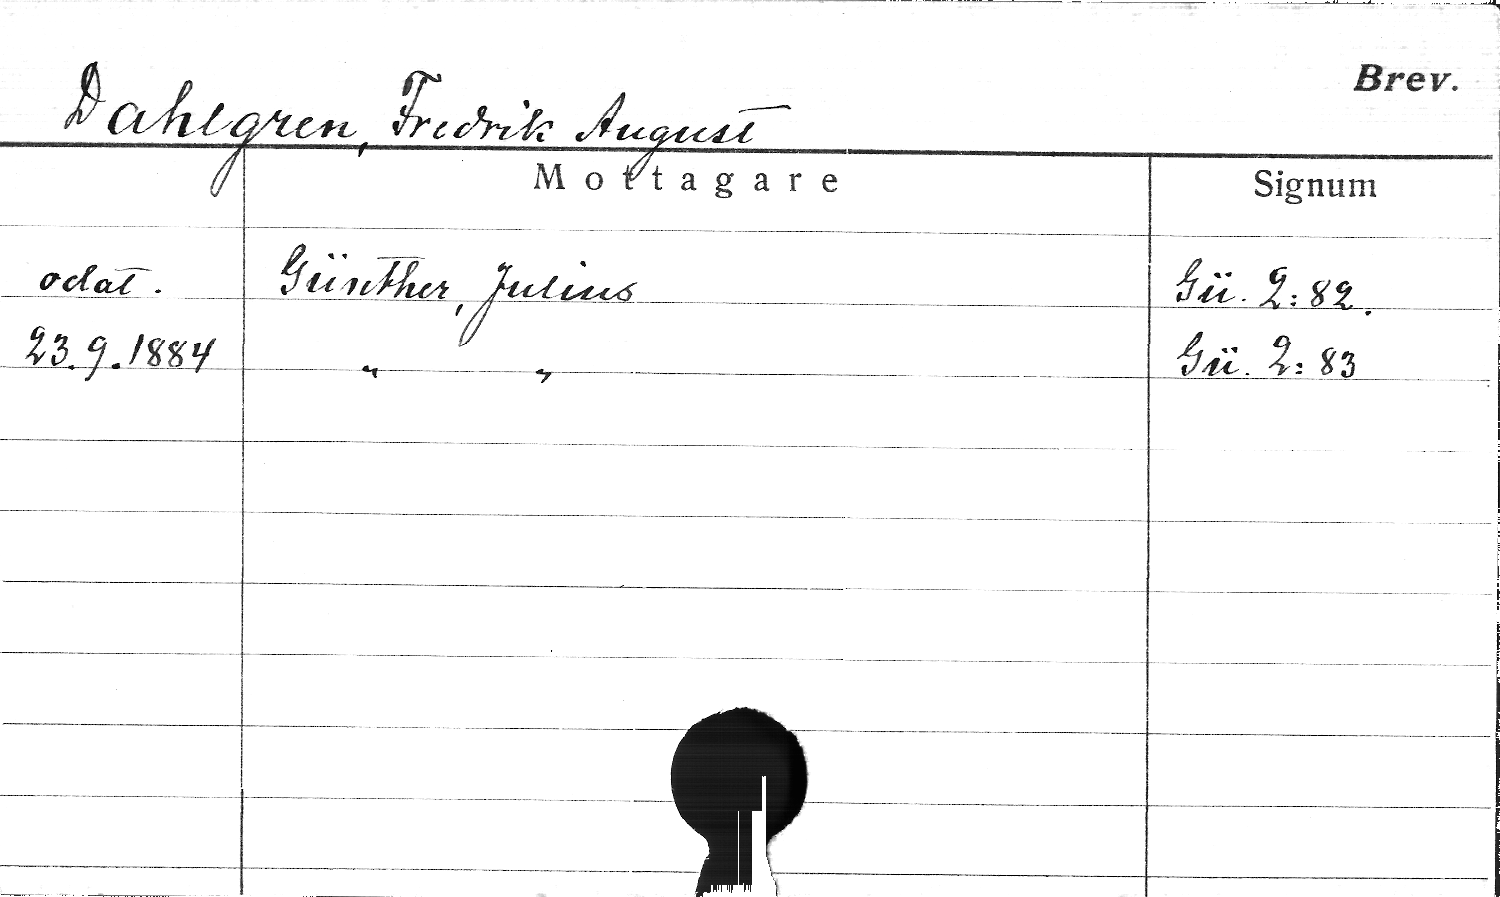 Brev.
Dahlgren, Fredrik August
Mottagare Signum
odat. Günther, Julius Gü. 2:82.
23.9.1884 " " Gü. 2:83